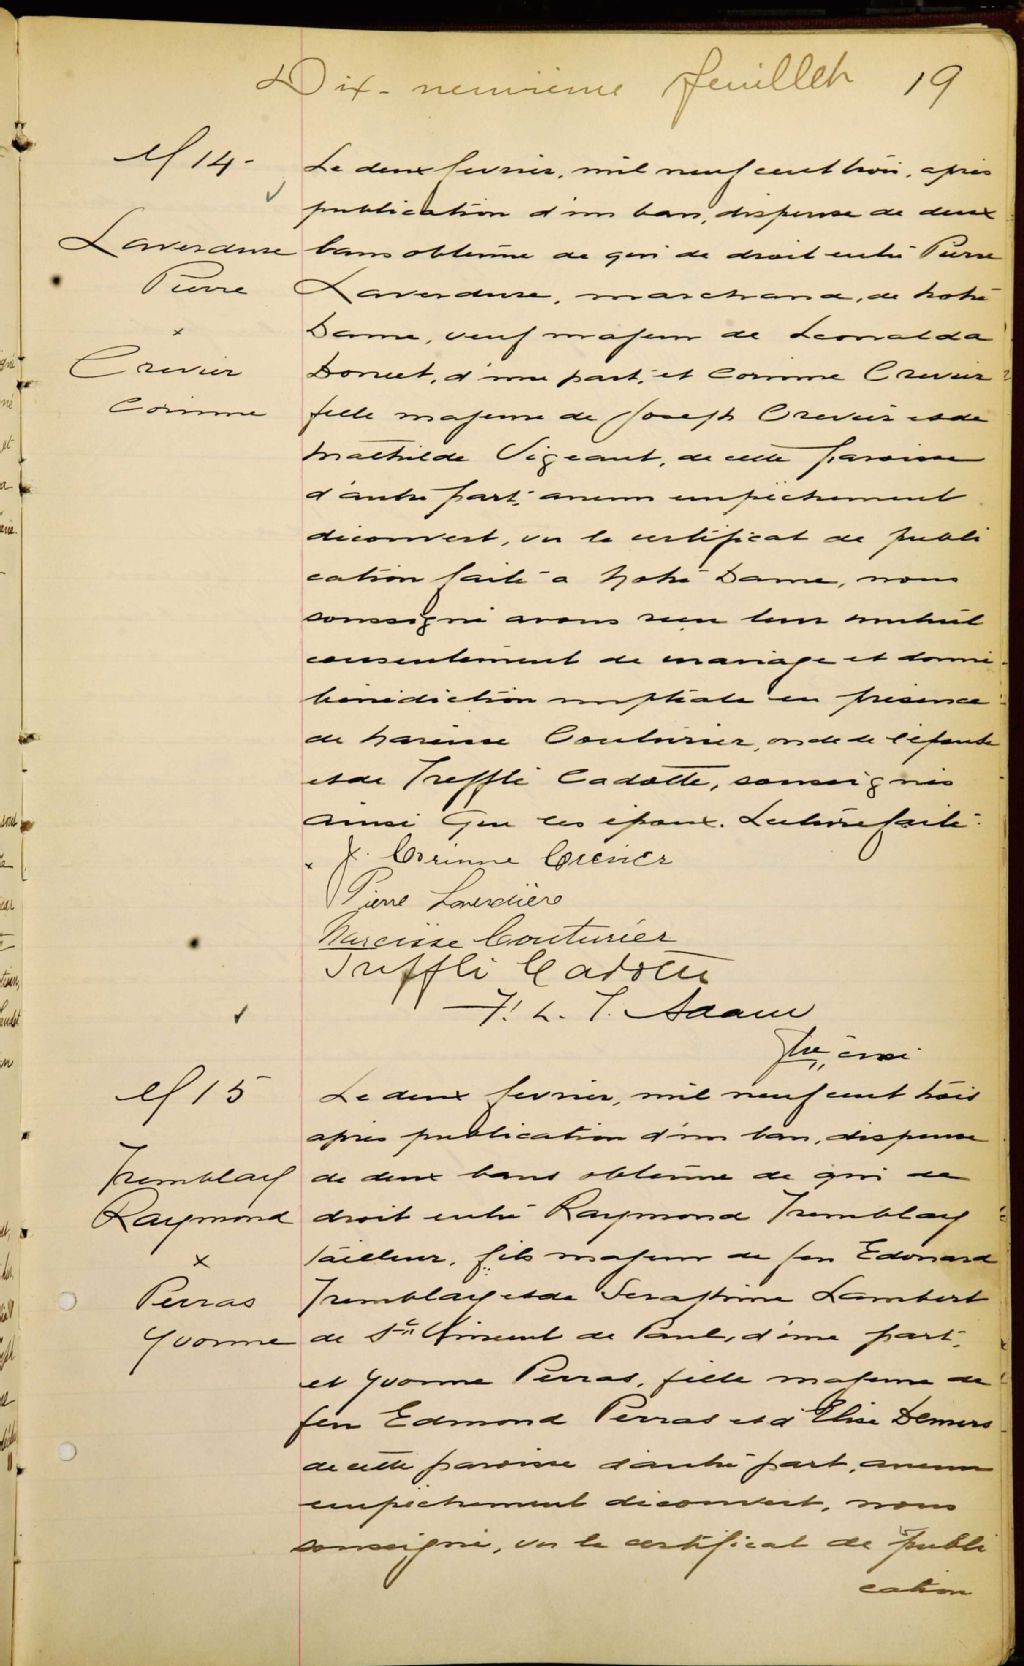 Dix-neuvième feuillet 19
M 14-
Laverdure
Pierre
x
Crevier
Corinne
Le deux fevrier, mil neuf cent trois, après
publication d'un ban, dispense de deux
bans obtenue de qui de droit entre Pierre
Laverdure, marchand, de Notre
Dame, veuf majeur de Leonalda
Doucet, d'une part, et Corinne Crevier
fille majeure de Joseph Crevier et de
Mathilde Vigeant, de cette paroisse
d'autre part, aucun empêchement
découvert, vu le certificat de publi
cation faite a Notre Dame, nous
soussigné avons reçu leur mutuel
consentement de mariage et donné
bénédiction nuptiale en présence
de Narcisse Couturier, oncle de l'épouse
et de Trefflé Cadotte, soussignés
ainsi que les époux. Lecture faite.
x J. Corinne Crevier
Pierre Laverdière
Narcisse Couturier
Treffli Cadotte
F. L. T. Adam
Ptre, curé
M 15
Tremblay
Raymond
x
Perras
Yvonne
Le deux fevrier, mil neuf cent trois
après publication d'un ban, dispense
de deux bans obtenue de qui de
droit entre Raymond Tremblay
tailleur, fils majeur de feu Edouard
Tremblay et de Seraphine Lambert
de St Vincent de Paul, d'une part,
et Yvonne Perras, fille majeure de
feu Edmond Perras et d'Elise Demers
de cette paroisse d'autre part, aucun
empêchement découvert, nous
soussigné, vu le certificat de publi
cation